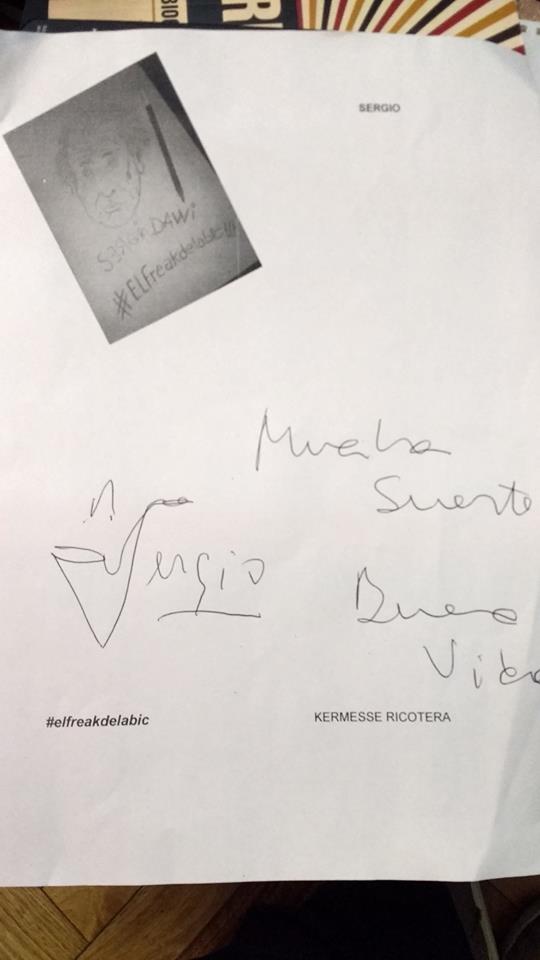 SERGIO
SERGIO DAWI
#ELFreakdelabic!!!
Mucha
Suerte
Sergio
Buena
Vida
#elfreakdelabic
KERMESSE RICOTERA